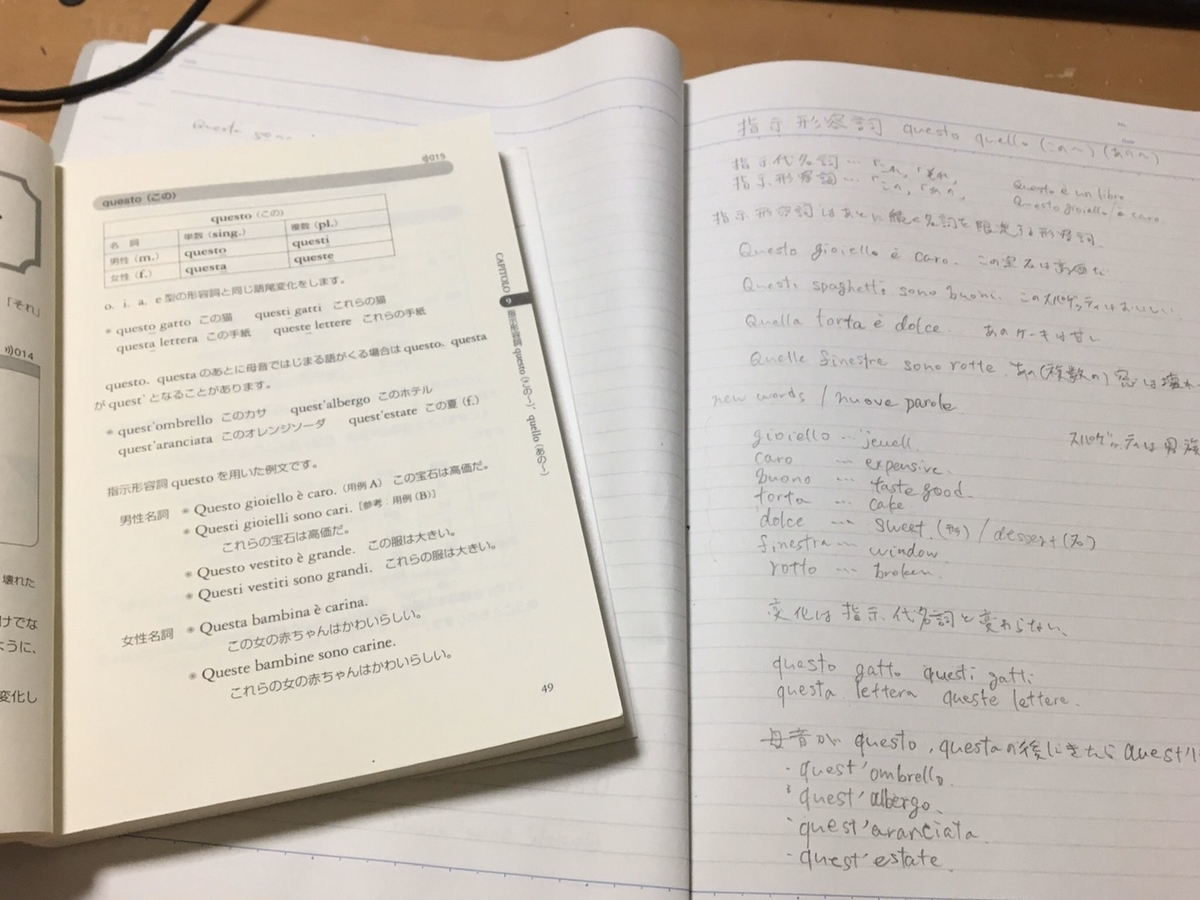 「それ」
014
壊れた
けでな
ように、
変化し
015
questo（この）
questo（この）
名 詞 単数 (sing.) 複数 (pl.)
男性 (m.) questo questi
女性 (f.) questa queste
o、i、a、e 型の形容詞と同じ語尾変化をします。
questo gatto この猫 questi gatti これらの猫
questa lettera この手紙 queste lettere これらの手紙
questo、questa のあとに母音ではじまる語がくる場合は questo、questa
が quest' となることがあります。
quest'ombrello このカサ quest'albergo このホテル
quest'aranciata このオレンジソーダ quest'estate この夏 (f.)
指示形容詞 questo を用いた例文です。
男性名詞 Questo gioiello è caro.（用例 A） この宝石は高価だ。
Questi gioielli sono cari.［参考：用例 (B)］
これらの宝石は高価だ。
Questo vestito è grande. この服は大きい。
Questi vestiti sono grandi. これらの服は大きい。
女性名詞 Questa bambina è carina.
この女の赤ちゃんはかわいらしい。
Queste bambine sono carine.
これらの女の赤ちゃんはかわいらしい。
49
CAPITOLO 9 指示形容詞 questo（この〜）、quello（あの〜）
Questo sono
指示形容詞 questo quello (この〜) (あの〜)
指示代名詞 … 「これ、「それ、
指示形容詞 … 「この、「あの、
Questo è un libro
Questo gioiello è caro
指示形容詞はあとに続く名詞を限定する形容詞。
Questo gioiello è caro. この宝石は高価だ
Questi spaghetti sono buoni. このスパゲッティはおいしい.
Quella torta è dolce. あのケーキは甘い
Quelle finestre sono rotte. あの(複数の)窓は壊れ
new words / nuove parole
gioiello … jewell. スパゲッティは男
caro … expensive.
buono … taste good.
torta … cake
dolce … sweet.(形) / dessert(名)
finestra … window
rotto … broken.
変化は指示代名詞と変わらない、
questo gatto questi gatti
questa lettera queste lettere.
母音が questo, questaの後にきたら quest'
・quest'ombrello.
・quest'albergo.
・quest'aranciata
・quest'estate.